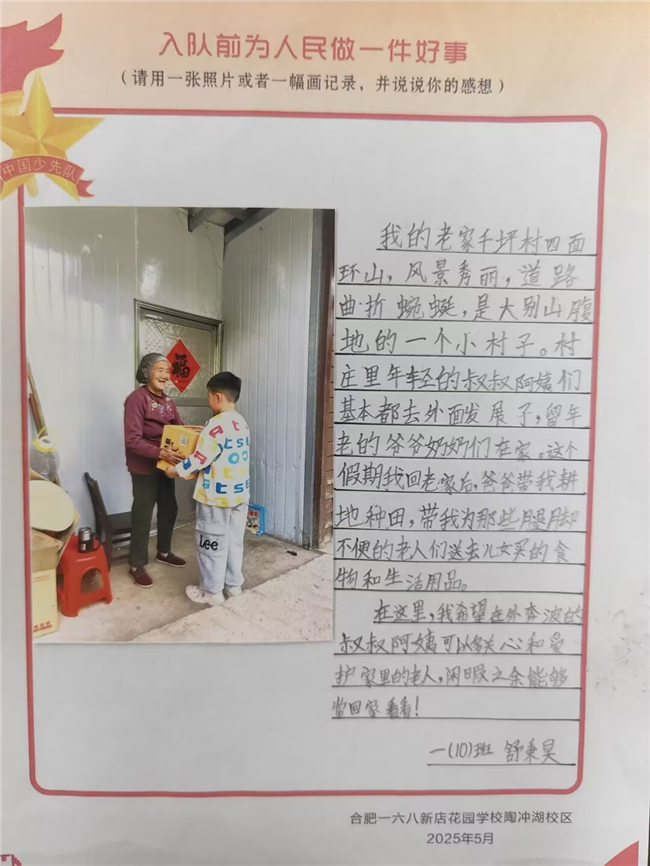 入队前为人民做一件好事
（请用一张照片或者一幅画记录，并说说你的感想）
中国少先队
福
我的老家千坪村四面
环山，风景秀丽，道路
曲折蜿蜒，是大别山腹
地的一个小村子。村
庄里年轻的叔叔阿姨们
基本都去外面发展了，留年
老的爷爷奶奶们在家。这个
假期我回老家后，爸爸带我耕
地种田，带我为那些腿脚
不便的老人们送去儿女买的食
物和生活用品。
在这里，我希望在外奔波的
叔叔阿姨可以多关心和爱
护家里的老人，闲暇之余能够
常回家看看！
一(10)班 舒秉昊
Lee
合肥一六八新店花园学校陶冲湖校区
2025年5月